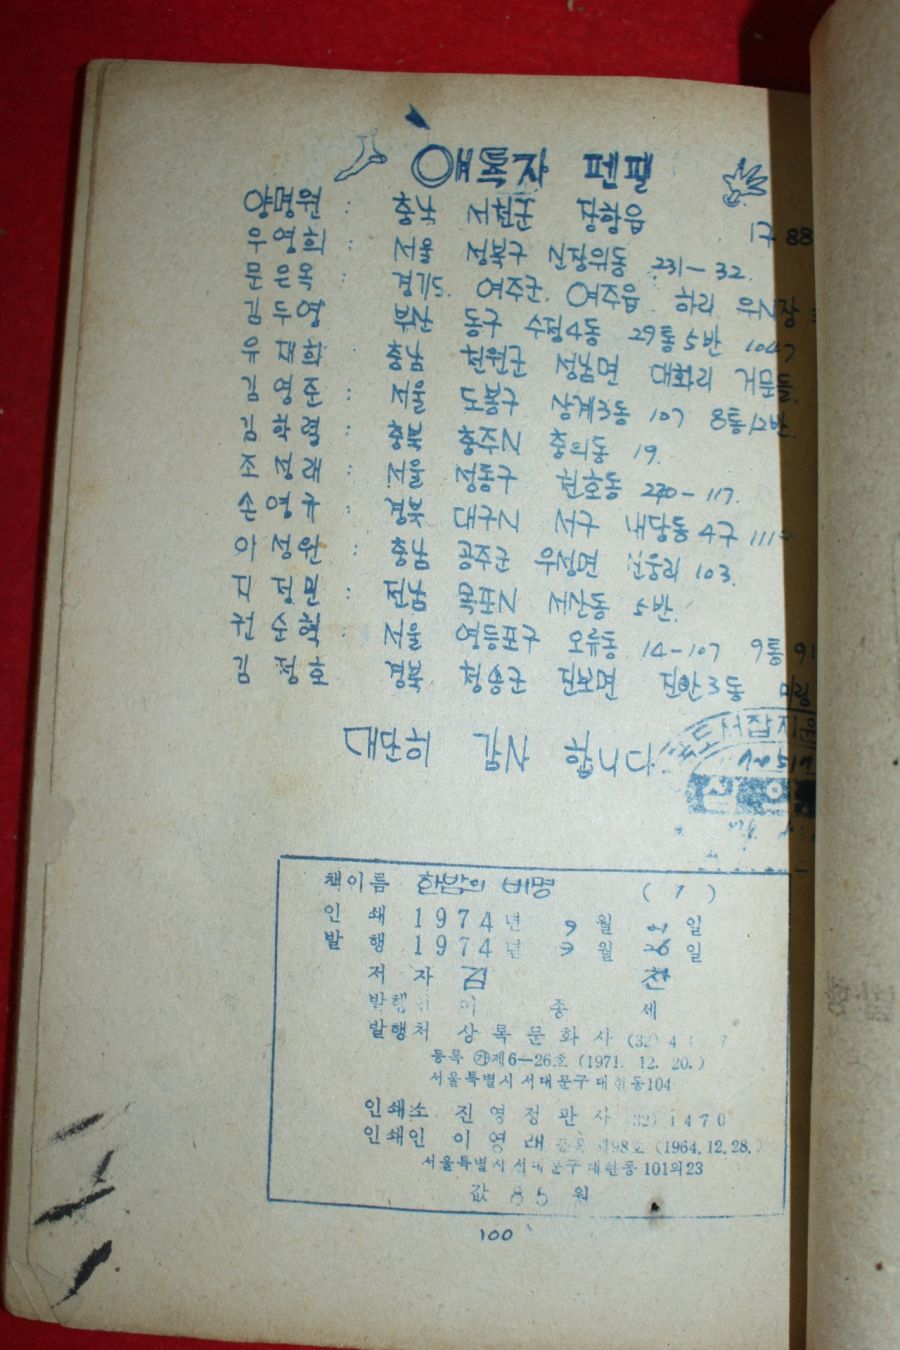 애독자 펜팔
양명원 : 충남 서천군 장항읍 1구 88
우영희 : 서울 성북구 장위동 231-32.
문은옥 : 경기도. 여주군. 여주읍 하리
김두영 부산 동구 수정4동 29통 5반 1047
유재학 : 충남 정남면 대화리 거문들.
김영준 : 서울 도봉구 상계3동 107 8통12반.
김학령 : 충북 충주시 충의동 19.
조정래 : 서울 성동구 천호동 230-117.
손영규 : 경북 대구시 서구 내당동 4구 111
이정원 : 충남 공주군 우성면 103.
민 : 전남 목포시 서산동 5반.
천순혁 : 서울 영등포구 오류동 14-107 9통 9
김정호 경북 청송군 진보면 진안3동
대단히 감사 합니다
도서잡지윤
심의
책이름 한밤의 비명 (1)
인쇄 1974년 9월 일
발행 1974년 9월 26일
저자 김 찬
발행인 이종세
발행처 상록문화사 (32) 4
등록 ㉮제6-26호 (1971. 12. 20.)
서울특별시 서대문구 대현동104
인쇄소 진영정판사 (32) 1470
인쇄인 이영래 등록 제98호 (1964. 12. 28.)
서울특별시 서대문구 대현동 101의23
값 85원
100